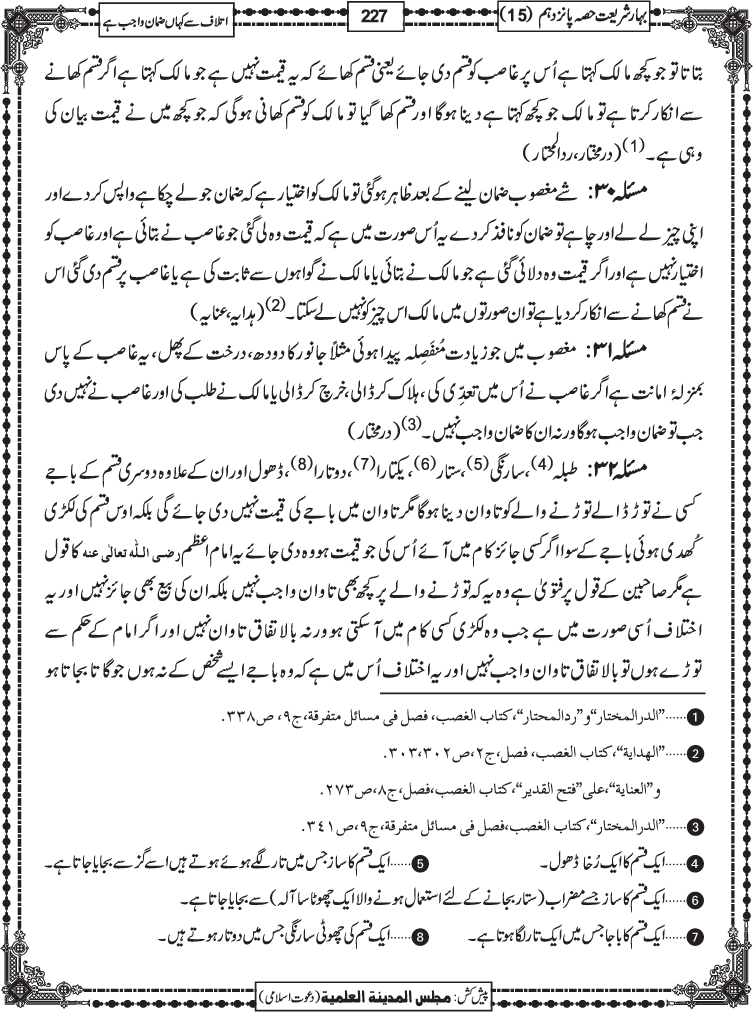 بہار شریعت حصہ پانزدہم (15)
227
اتلاف سے کہاں ضمان واجب ہے
بتاتا تو جو کچھ مالک کہتا ہے اُس پر غاصب کو قسم دی جائے یعنی قسم کھائے کہ یہ قیمت نہیں ہے جو مالک کہتا ہے اگر قسم کھانے
سے انکار کرتا ہے تو مالک جو کچھ کہتا ہے دینا ہوگا اور قسم کھا گیا تو مالک کو قسم کھانی ہوگی کہ جو کچھ میں نے قیمت بیان کی
وہی ہے۔(1) (درمختار، ردالمحتار)
مسئلہ ۳۰: شے مغصوب ضمان لینے کے بعد ظاہر ہوگئی تو مالک کو اختیار ہے کہ ضمان جو لے چکا ہے واپس کردے اور
اپنی چیز لے لے اور چاہے تو ضمان کو نافذ کردے یہ اُس صورت میں ہے کہ قیمت وہ لی گئی جو غاصب نے بتائی ہے اور غاصب کو
اختیار نہیں ہے اور اگر قیمت وہ دلائی گئی ہے جو مالک نے بتائی یا مالک نے گواہوں سے ثابت کی ہے یا غاصب پر قسم دی گئی اس
نے قسم کھانے سے انکار کردیا ہے تو ان صورتوں میں مالک اس چیز کو نہیں لے سکتا۔(2) (ہدایہ، عنایہ)
مسئلہ ۳۱: مغصوب میں جو زیادت مُنفَصِلہ پیدا ہوئی مثلاً جانور کا دودھ، درخت کے پھل، یہ غاصب کے پاس
بمنزلۂ امانت ہے اگر غاصب نے اُس میں تعدّی کی، ہلاک کرڈالی، خرچ کرڈالی یا مالک نے طلب کی اور غاصب نے نہیں دی
جب تو ضمان واجب ہوگا ورنہ ان کا ضمان واجب نہیں۔(3) (درمختار)
مسئلہ ۳۲: طبلہ(4)، سارنگی(5)، ستار(6)، یکتارا(7)، دوتارا(8)، ڈھول اور ان کے علاوہ دوسری قسم کے باجے
کسی نے توڑ ڈالے توڑنے والے کو تاوان دینا ہوگا مگر تاوان میں باجے کی قیمت نہیں دی جائے گی بلکہ اوس قسم کی لکڑی
کُھدی ہوئی باجے کے سوا اگر کسی جائز کام میں آئے اُس کی جو قیمت ہو وہ دی جائے یہ امام اعظم رضی اللّٰہ تعالٰی عنہ کا قول
ہے مگر صاحبین کے قول پر فتویٰ ہے وہ یہ کہ توڑنے والے پر کچھ بھی تاوان واجب نہیں بلکہ ان کی بیع بھی جائز نہیں اور یہ
اختلاف اُسی صورت میں ہے جب وہ لکڑی کسی کام میں آسکتی ہو ورنہ بالاتفاق تاوان نہیں اور اگر امام کے حکم سے
توڑے ہوں تو بالاتفاق تاوان واجب نہیں اور یہ اختلاف اُس میں ہے کہ وہ باجے ایسے شخص کے نہ ہوں جو گاتا بجاتا ہو
1 ......"الدرالمختار" و "ردالمحتار"، کتاب الغصب، فصل فی مسائل متفرقة، ج۹، ص۳۳۸.
2 ......"الھدایة"، کتاب الغصب، فصل، ج۲، ص۳۰۲،۳۰۳.
و "العنایة"، علی "فتح القدیر"، کتاب الغصب، فصل، ج۸، ص۲۷۳.
3 ......"الدرالمختار"، کتاب الغصب، فصل فی مسائل متفرقة، ج۹، ص۳۴۱.
4 ......ایک قسم کا ایک رُخا ڈھول۔ 5 ......ایک قسم کا ساز جس میں تار لگے ہوئے ہوتے ہیں اسے گز سے بجایا جاتا ہے۔
6 ......ایک قسم کا ساز جسے مضراب (ستار بجانے کے لئے استعمال ہونے والا ایک چھوٹا سا آلہ) سے بجایا جاتا ہے۔
7 ......ایک قسم کا باجا جس میں ایک تار لگا ہوتا ہے۔ 8 ......ایک قسم کی چھوٹی سارنگی جس میں دو تار ہوتے ہیں۔
پیش کش: مجلس المدینة العلمیة (دعوت اسلامی)